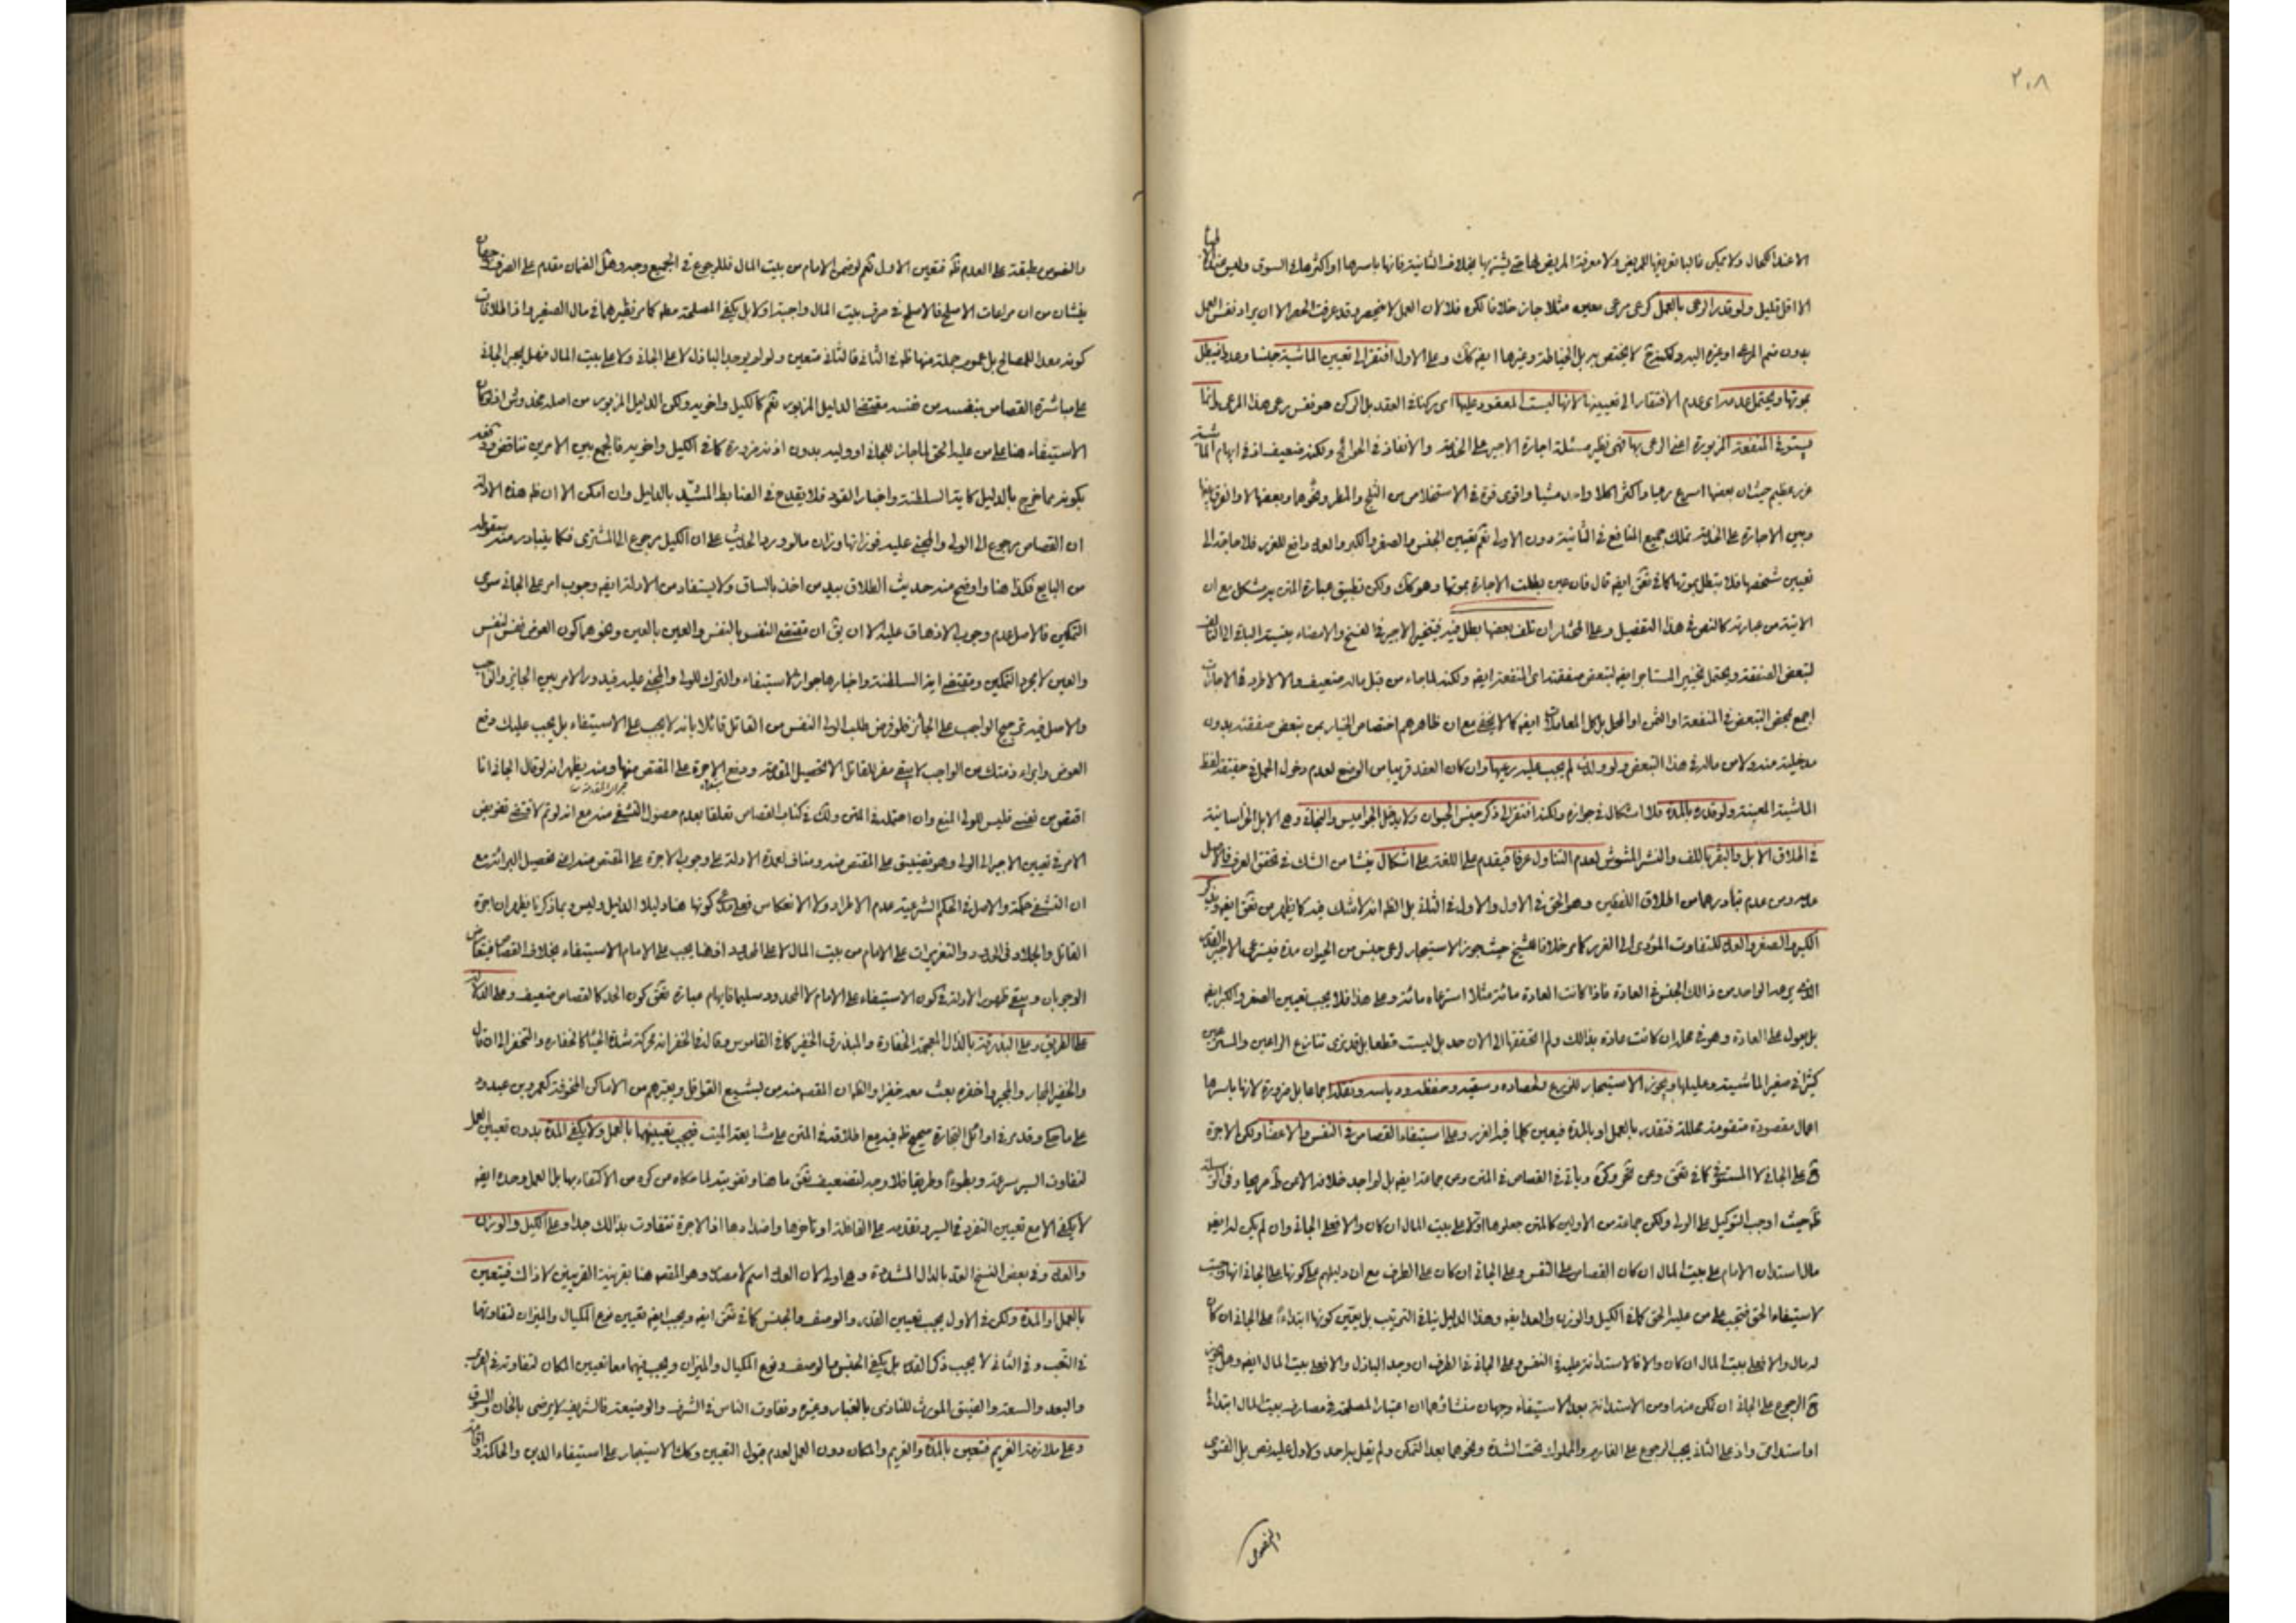 ٢٠٨
الا عند الكحال ولا يمكن غالبا تعريفها للمريض ولا معرفة المريض لها حتى يشتريها بخلاف الثانية فانها باسرها او اكثرها في السوق وليس
الا اقل قليل ولو قدر الرعى بالعمل كرعى مرعى معين مثلا جاز خلافا لكره فلا لان العمل لا ينحصر وقد عرفت الحصر الا ان يراد نفس العمل
بدون ضم المرعى او غيره اليه ولكنه ح لا يختص به بل الخياطة وغيرها ايضا كك وعلى الاول افتقر الى تعيين الماشية جنسا وعددا فيبطل
بموتها ويحتمل عدمه اى عدم الافتقار الى تعيينها لانها ليست المعقود عليها اى ركنا في العقد بل الركن هو نفس رعى هذا المرعى وانما
يستوفى المنفعة المزبورة اعنى الرعى بها فهى نظير مسئلة اجارة الاجير على الخدمة والانفاذ في الحوائج ولكنه ضعيف اذ في ابهام الماشية
غرر عظيم حيث ان بعضها اسرع رعيا واكثر اكلا مشيا واقوى قوة في الاستخلاص من الثلج والمطر ونحوهما وبعضها لا والفرق بينها
وبين الاجارة على الخدمة تملك جميع المنافع في الثانية دون الاولى نعم تعيين الجنس والصغر والكبر والعدد رافع للغرر فلا حاجة الى
تعيين شخصها فلا يبطل بموتها كما في ايضا قال فان عين بطلت الاجارة بموتها وهو كك ولكن تطبيق عبارة المتن به مشكل مع ان
الاتية من عبارته كالنص في هذا التفصيل وعلى المختار ان تلف بعضها بطل فيه فيتخير الاجير في الفسخ والامضاء بنسبة الباقى الى التالف
لتبعض الصفقة ويحتمل تخيير المستاجر ايضا لتبعض صفقته اى المنفعة ايضا ولكنه لما جاء من قبل ماله ضعيف والا لاطرد في الاجارات
اجمع بمحض التبعض في المنفعة او الثمن او المحل بل كل المعاملات ايضا كما لا يخفى مع ان ظاهرهم اختصاص الخيار بمن تبعض صفقته بدون
مدخلية منه ولا من ماله في هذا التبعض ولو ولدت لم يجب عليه رعيها وان كان العقد قريبا من الوضع لعدم دخول الحمل في حقيقة لفظ
الماشية المعينة ولو قدره بالمدة فلا اشكال في جوازه ولكنه افتقر الى ذكر جنس الحيوان ولا يدخل الجواميس والبخاتى وهى الابل الخراسانية
في اطلاق الابل والبقر باللف والنشر المشوش لعدم التناول عرفا فيقدم على اللغة على اشكال ينشا من الشك في تحقق العرف فالاصل
عدمه ومن عدم تبادرهما من اطلاق اللفظين وهو الحق في الاول والاول في الثانى بل الظ انه لا شك فيه كما يظهر من ايضا ويذكر
الكبر والصغر والعدد للتفاوت المؤدى الى الغرر كما مر خلافا للشيخ حيث جوز الاستيجار لرعى جنس من الحيوان مدة فيسترعى الاجير القدر
الذى يرعى الواحد من ذلك الجنس في العادة فاذا كانت العادة مائة مثلا استرعاه مائة وعلى هذا فلا يجب تعيين الصغر والكبر ايضا
بل يعول على العادة وهو في محله ان كانت عادة بذلك ولم نتحققها الى الان بل ليست قطعا بل قد نرى تنازع الراعين والمسترعين
كثيرا في صغير الماشية وعليلها ويجوز الاستيجار للزرع ولحصاده وسقيه وحفظه ودياسه ونقله اجماعا بل ضرورة لانها باسرها
اعمال مقصودة متقومة محللة فتقدر بالعمل او بالمدة فيعين كلما فيه الغرر وعلى استيفاء القصاص في النفس والاعضاء ولكن الاجرة
ح على الجانى لا المستوفى كما في وعن وكره وياتى في القصاص في المتن وعن جماعة ايضا بل لم اجد خلافه الا عن ط صريحا وفى الوسيلة
ظ حيث اوجب التوكيل على الولى ولكن جماعة من الاولين كالمتن جعلوها اولا على بيت المال ان كان والا فعلى الجانى وان لم يكن له ايضا
مال استدان الامام على بيت المال ان كان القصاص على النفس وعلى الجانى ان كان على الطرف مع ان دليلهم على كونها على الجانى انها وجبت
لاستيفاء الحق فتجب على من عليه الحق كما في الكيل والوزن والعد ايضا وهذا الدليل ينافى الترتيب بل يعين كونها ابتداء على الجانى ان كان
له مال والا فعلى بيت المال ان كان والا فالاستدانة عليه في النفس وعلى الجانى في الطرف ان وجد الباذل والا فعلى بيت المال ايضا وهل يجوز
ح الرجوع على الجانى ان تمكن من ادائه من الاستدانة بعد الاستيفاء وجهان منشاؤهما ان اعتبار المصلحة في مصارف بيت المال ابتدائى
او استدامى واذ على الثانى يجب الرجوع على الغارم والمملوك تحت الشدة ونحوهما بعد التمكن ولم يقل به احد ولا دل عليه نص بل الفتوى
والنصوص
والنصوص مطبقة على العدم ظ فتعين الاول نعم لو ضمن الامام من بيت المال فللرجوع في الجميع وجه وهل الضمان مقدم على الصرف وجهان
ينشان من ان مراعات الاصلح فالاصلح في صرف بيت المال واجبة اولا بل يكفى المصلحة مط كما مر نظيرهما في مال الصغير واذ اطلاقات
كونه معدا للمصالح بل عموم جملة منها ظ في الثانى فالثانى متعين ولو لم يوجد الباذل لا على الجانى ولا على بيت المال فهل يجبر الجانى
على مباشرة القصاص بنفسه من نفسه مقتضى الدليل المزبور نعم كالكيل واخويه ولكن الدليل المزبور من اصله مخدوش اذ لو كان
الاستيفاء هنا على من عليه الحق لما جاز للجانى او وليه بدون اذنه ضرورة كما في الكيل واخويه فالجمع بين الامرين تناقض
بكونه مما خرج بالدليل كاية السلطنة واخبار القود فلا يقدح في الضابط المشيد بالدليل وان امكن الا ان ظ هذه الادلة
ان القصاص يرجع الى الولى والمجنى عليه فوزانها وزان ما لو ورد الحديث على ان الكيل يرجع الى المشترى فكما يتبادر منه سقوطه
من البايع فكذا هنا واوضح منه حديث الطلاق بيد من اخذ بالساق ولا يستفاد من الادلة ايضا وجوب امر على الجانى سوى
التمكين فالاصل عدم وجوب الازهاق عليه الا ان يق ان مقتضى النفس بالنفس والعين بالعين ونحوهما كون العوض نفس النفس
والعين لا مجرد التمكين ومقتضى اية السلطنة واخبارها جواز الاستيفاء والترك للولى والمجنى عليه فيدور الامر بين الجائز والواجب
والاصل فيه ترجيح الواجب على الجائز فلو فرض طلب الولى النفس من القاتل قائلا بانه لا يجب على الاستيفاء بل يجب عليك دفع
العوض وابراء ذمتك من الواجب لا يبقى مفر للقاتل الا تحصيل المقدمة ودفع الاجرة على المقتص منها ومنه يظهر انه لو قال الجانى انا
اقتص من نفسى فليس للولى المنع وان احتمله في المتن وذلك في كتاب القصاص تعلقا بعدم حصول التشفى منه مع انه لو تم لاقتضى تفويض
الامر في تعيين الاجير الى الولى وهو تضييق على المقتص منه ومناف لعدة الادلة على وجوب الاجرة على المقتص منه اعنى تحصيل البرائة مع
ان التشفى حكمة والاصل في الحكم الشرعية عدم الاطراد ولا الانعكاس فعلى مدعى كونها هنا دليلا الدليل وليس وبما ذكرنا يظهر ان اجرة
القاتل والجلاد في الحدود والتعزيرات على الامام من بيت المال لا على المحدود اذ هنا يجب على الامام الاستيفاء بخلاف القصاص فيتعارض
الوجوبان ويبقى ظهور الادلة في كون الاستيفاء على الامام لا المحدود سليما فايهام عبارة كون الحد كالقصاص ضعيف وعلى الدلالة
على الطريق وعلى البذرقة بالذال المعجمة الخفارة والمبذرق الخفير كما في القاموس وقال في الخفر انه محركة شدة الحياء كالخفارة والتخفر الى ان قال
والخفير المجار والمجير واخفره بعث معه خفيرا والظ ان المقصود منه من يشيع القوافل ويعبرهم من الاماكن المخوفة كعمرو بن عبدود
على ما حكى وقد مر في اوائل التجارة صحيح ظ فيه مع اطلاقه في المتن على مشايعة الميت فيجب تعيينهما بالعمل ولا يكفى المدة بدون تعيين العمل
لتفاوت السير سرعة وبطوءا وطريقا فلا وجه لتضعيف ما هنا وتقويته لما حكاه من كره من الاكتفاء بها بل العمل وحده ايضا
لا يكفى الا مع تعيين التفرد في السير وتقدمه على القافلة او تاخرها واضدادها اذ الاجرة تتفاوت بذلك جدا وعلى الكيل والوزن
والعدد وفى بعض النسخ العد بالدال المشددة وهى اولى لان العدد اسم لا مصدر وهو المقصود هنا بقرينة القرينين لا ذاك فيتعين
بالعمل او المدة ولكن في الاول يجب تعيين القدر والوصف والجنس كما في ايضا ويجب ايضا تعيين نوع المكيال والميزان لتفاوتهما
في التعب وفى الثانى لا يجب ذكر القدر بل يكفى الجنس والوصف ونوع المكيال والميزان ويجب فيهما معا تعيين المكان لتفاوته في القرب
والبعد والسعة والضيق المورث للتاذى بالغبار وغيره وتفاوت الناس في الشرف والوضيعة فالشريف لا يرضى بالخان والسوق
وعلى ملازمة الغريم فتعين بالمدة والغريم والمكان دون العمل لعدم قبول التعيين وكك الاستيجار على استيفاء الدين والمحاكمة